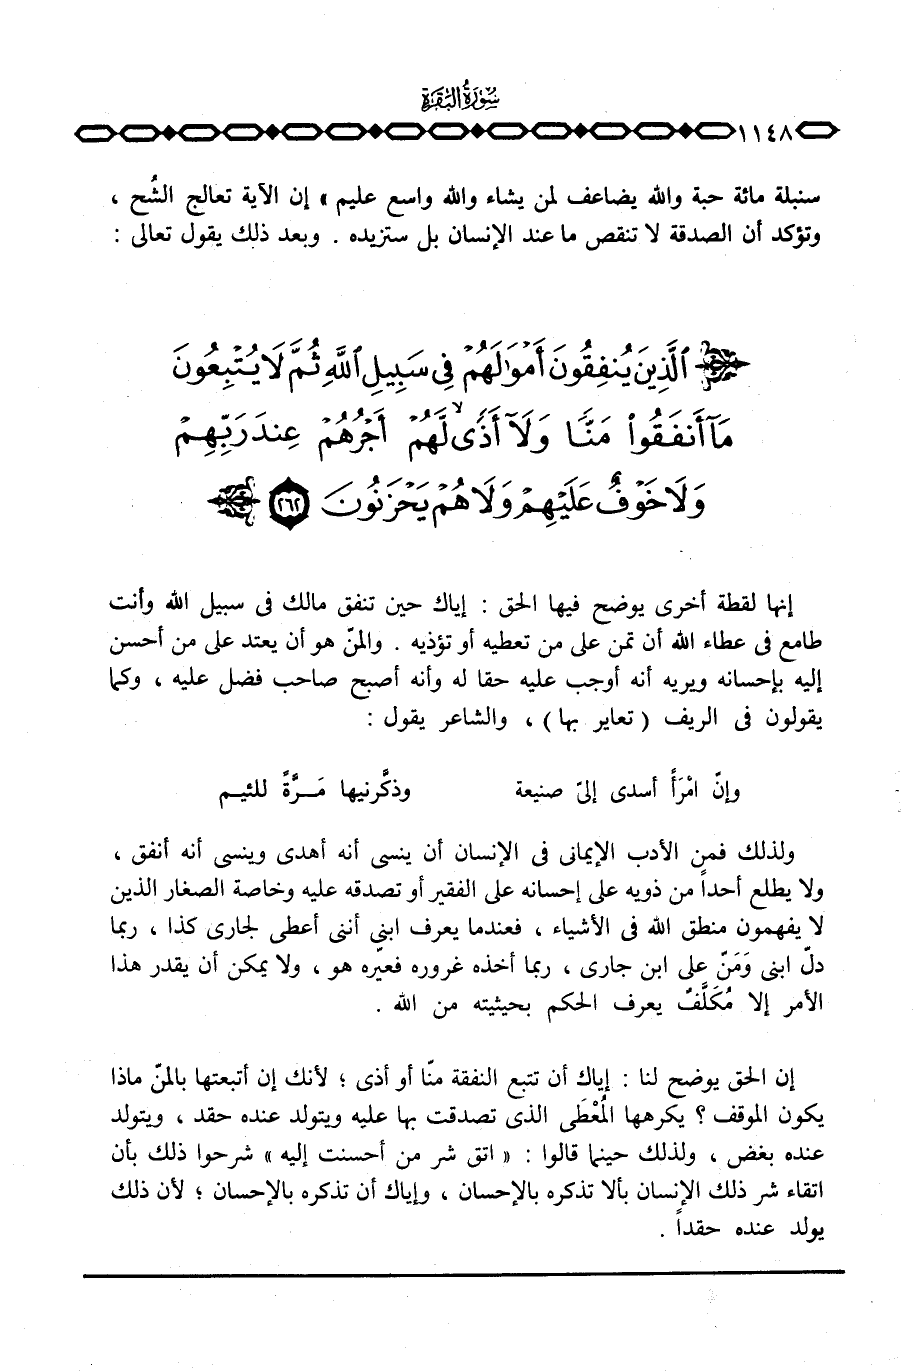 سُورَةُ البَقَرَةِ
١١٤٨
سنبلة مائة حبة والله يضاعف لمن يشاء والله واسع عليم » إن الآية تعالج الشُح ،
وتؤكد أن الصدقة لا تنقص ما عند الإنسان بل ستزيده . وبعد ذلك يقول تعالى :
ٱلَّذِينَ يُنفِقُونَ أَمْوَٰلَهُمْ فِى سَبِيلِ ٱللَّهِ ثُمَّ لَا يُتْبِعُونَ
مَآ أَنفَقُوا۟ مَنًّا وَلَآ أَذًى ۙ لَّهُمْ أَجْرُهُمْ عِندَ رَبِّهِمْ
وَلَا خَوْفٌ عَلَيْهِمْ وَلَا هُمْ يَحْزَنُونَ ٢٦٢
إنها لقطة أخرى يوضح فيها الحق : إياك حين تنفق مالك فى سبيل الله وأنت
طامع فى عطاء الله أن تمن على من تعطيه أو تؤذيه . والمنّ هو أن يعتد على من أحسن
إليه بإحسانه ويريه أنه أوجب عليه حقا له وأنه أصبح صاحب فضل عليه ، وكما
يقولون فى الريف ( تعاير بها ) ، والشاعر يقول :
وإنّ امْرَأً أسدى إلىّ صنيعة وذكَّرنيها مَـرَّةً للئيـم
ولذلك فمن الأدب الإيمانى فى الإنسان أن ينسى أنه أهدى وينسى أنه أنفق ،
ولا يطلع أحداً من ذويه على إحسانه على الفقير أو تصدقه عليه وخاصة الصغار الذين
لا يفهمون منطق الله فى الأشياء ، فعندما يعرف ابنى أننى أعطى لجارى كذا ، ربما
دلّ ابنى وَمَنّ على ابن جارى ، ربما أخذه غروره فعيّره هو ، ولا يمكن أن يقدر هذا
الأمر إلا مُكَلَّفٌ يعرف الحكم بحيثيته من الله .
إن الحق يوضح لنا : إياك أن تتبع النفقة منّا أو أذى ؛ لأنك إن أتبعتها بالمنّ ماذا
يكون الموقف ؟ يكرهها المُعْطَى الذى تصدقت بها عليه ويتولد عنده حقد ، ويتولد
عنده بغض ، ولذلك حينما قالوا : « اتق شر من أحسنت إليه » شرحوا ذلك بأن
اتقاء شر ذلك الإنسان بألا تذكره بالإحسان ، وإياك أن تذكره بالإحسان ؛ لأن ذلك
يولد عنده حقداً .